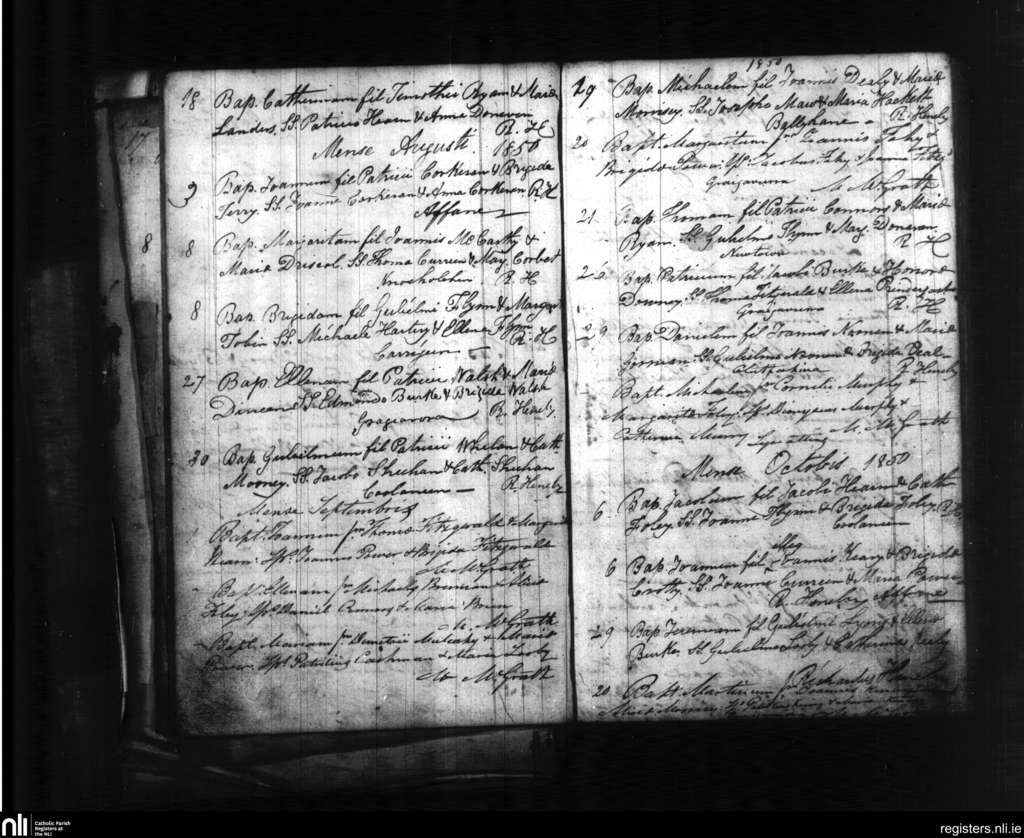 18 Bap. Catherinam fil Timothei Ryan & Maria
Landers. SS. Patricio Hearn & Anne Donovan
R. H
Mense Augusti 1850
3 Bap. Joannem fil Patricii Corkeran & Brigida
Terry. SS. Joanne Corkeran & Anna Corkeran R. H
Affane
8 8 Bap. Margaritam fil Joannis McCarthy &
Maria Driscol. SS. Thoma Curreen & May. Corbet
Knockolehin R. H
8 Bap. Brigidam fil Gulielmi Flynn & Margar
Tobin SS. Michaele Hartry & Ellena Flynn
Carrigeen R. H
27 Bap. Ellenam fil Patricii Walsh & Maria
Duncan SS. Edmondo Burke & Brigida Walsh
Graigavora R. Healy
30 Bap. Gulielmum fil Patricii Whelan & Cath
Mooney. SS. Jacobo Sheehan & Cath. Sheehan
Coolaneen R. Hensly
Mense Septembris
1 Bapt. Joannem Thoma Fitzgerald & Margar
Hearn. Sps. Joannes Power & Brigida Fitzgerald
M McGrath
Bapt. Ellenam Michaelis & Maria
Foley Sps. Daniel &
M. McGrath
Bapt. Mariam Demetrii Mulcahy & Maria
Power. Sps. Patritius Cashman & Maria
M McGrath
17
1850
19 Bap. Michaelem fil Joannis Dealy & Maria
Morrisey. SS. Josepho Maw & Maria Hackett
Ballyhane R. Hensly
20 Bapt. Margaritam Joannis Fahy &
Brigida Power. Sps. Jacobus Fahy & Joanna
Graigavurra M McGrath
21 Bap. Thomam fil Patricii Connors & Maria
Ryan. SS. Gulielmo Flynn & May. Donovan
Newtown R H
26 Bap. Patricium fil. Jacobi Burke & Honora
Downey. SS. Thoma Fitzgerald & Ellena Prendergast
Graigavurra R. H
29 Bap Danielem fil Joannis Noonan & Maria
Gorman SS Gulielmo Noonan & Brigida
R Hensly
Bapt. Michaelem Cornelii Murphy &
Margarita Foley. Sps. Dionysius Murphy &
Catherina Murray M. McGrath
Mense Octobis 1850
6 Bap. Jacobum fil Jacobi Hearn & Cath
Foley SS. Joanne Flynn & Brigida Foley R. H
Coolaneen
illeg
6 Bap. Joannem fil Joannis Keary & Brigida
Crotty. SS. Joanne Curreen & Maria Power
R. Hensley Affane
29 Bap. Jeremiam fil Gulielmi Lyons & Ellena
Burke. SS Gulielmo & Catherina
20 Bapt. Martinum Joannis
Maria Mooney.
nli Catholic Parish
Registers at
the NLI
registers.nli.ie